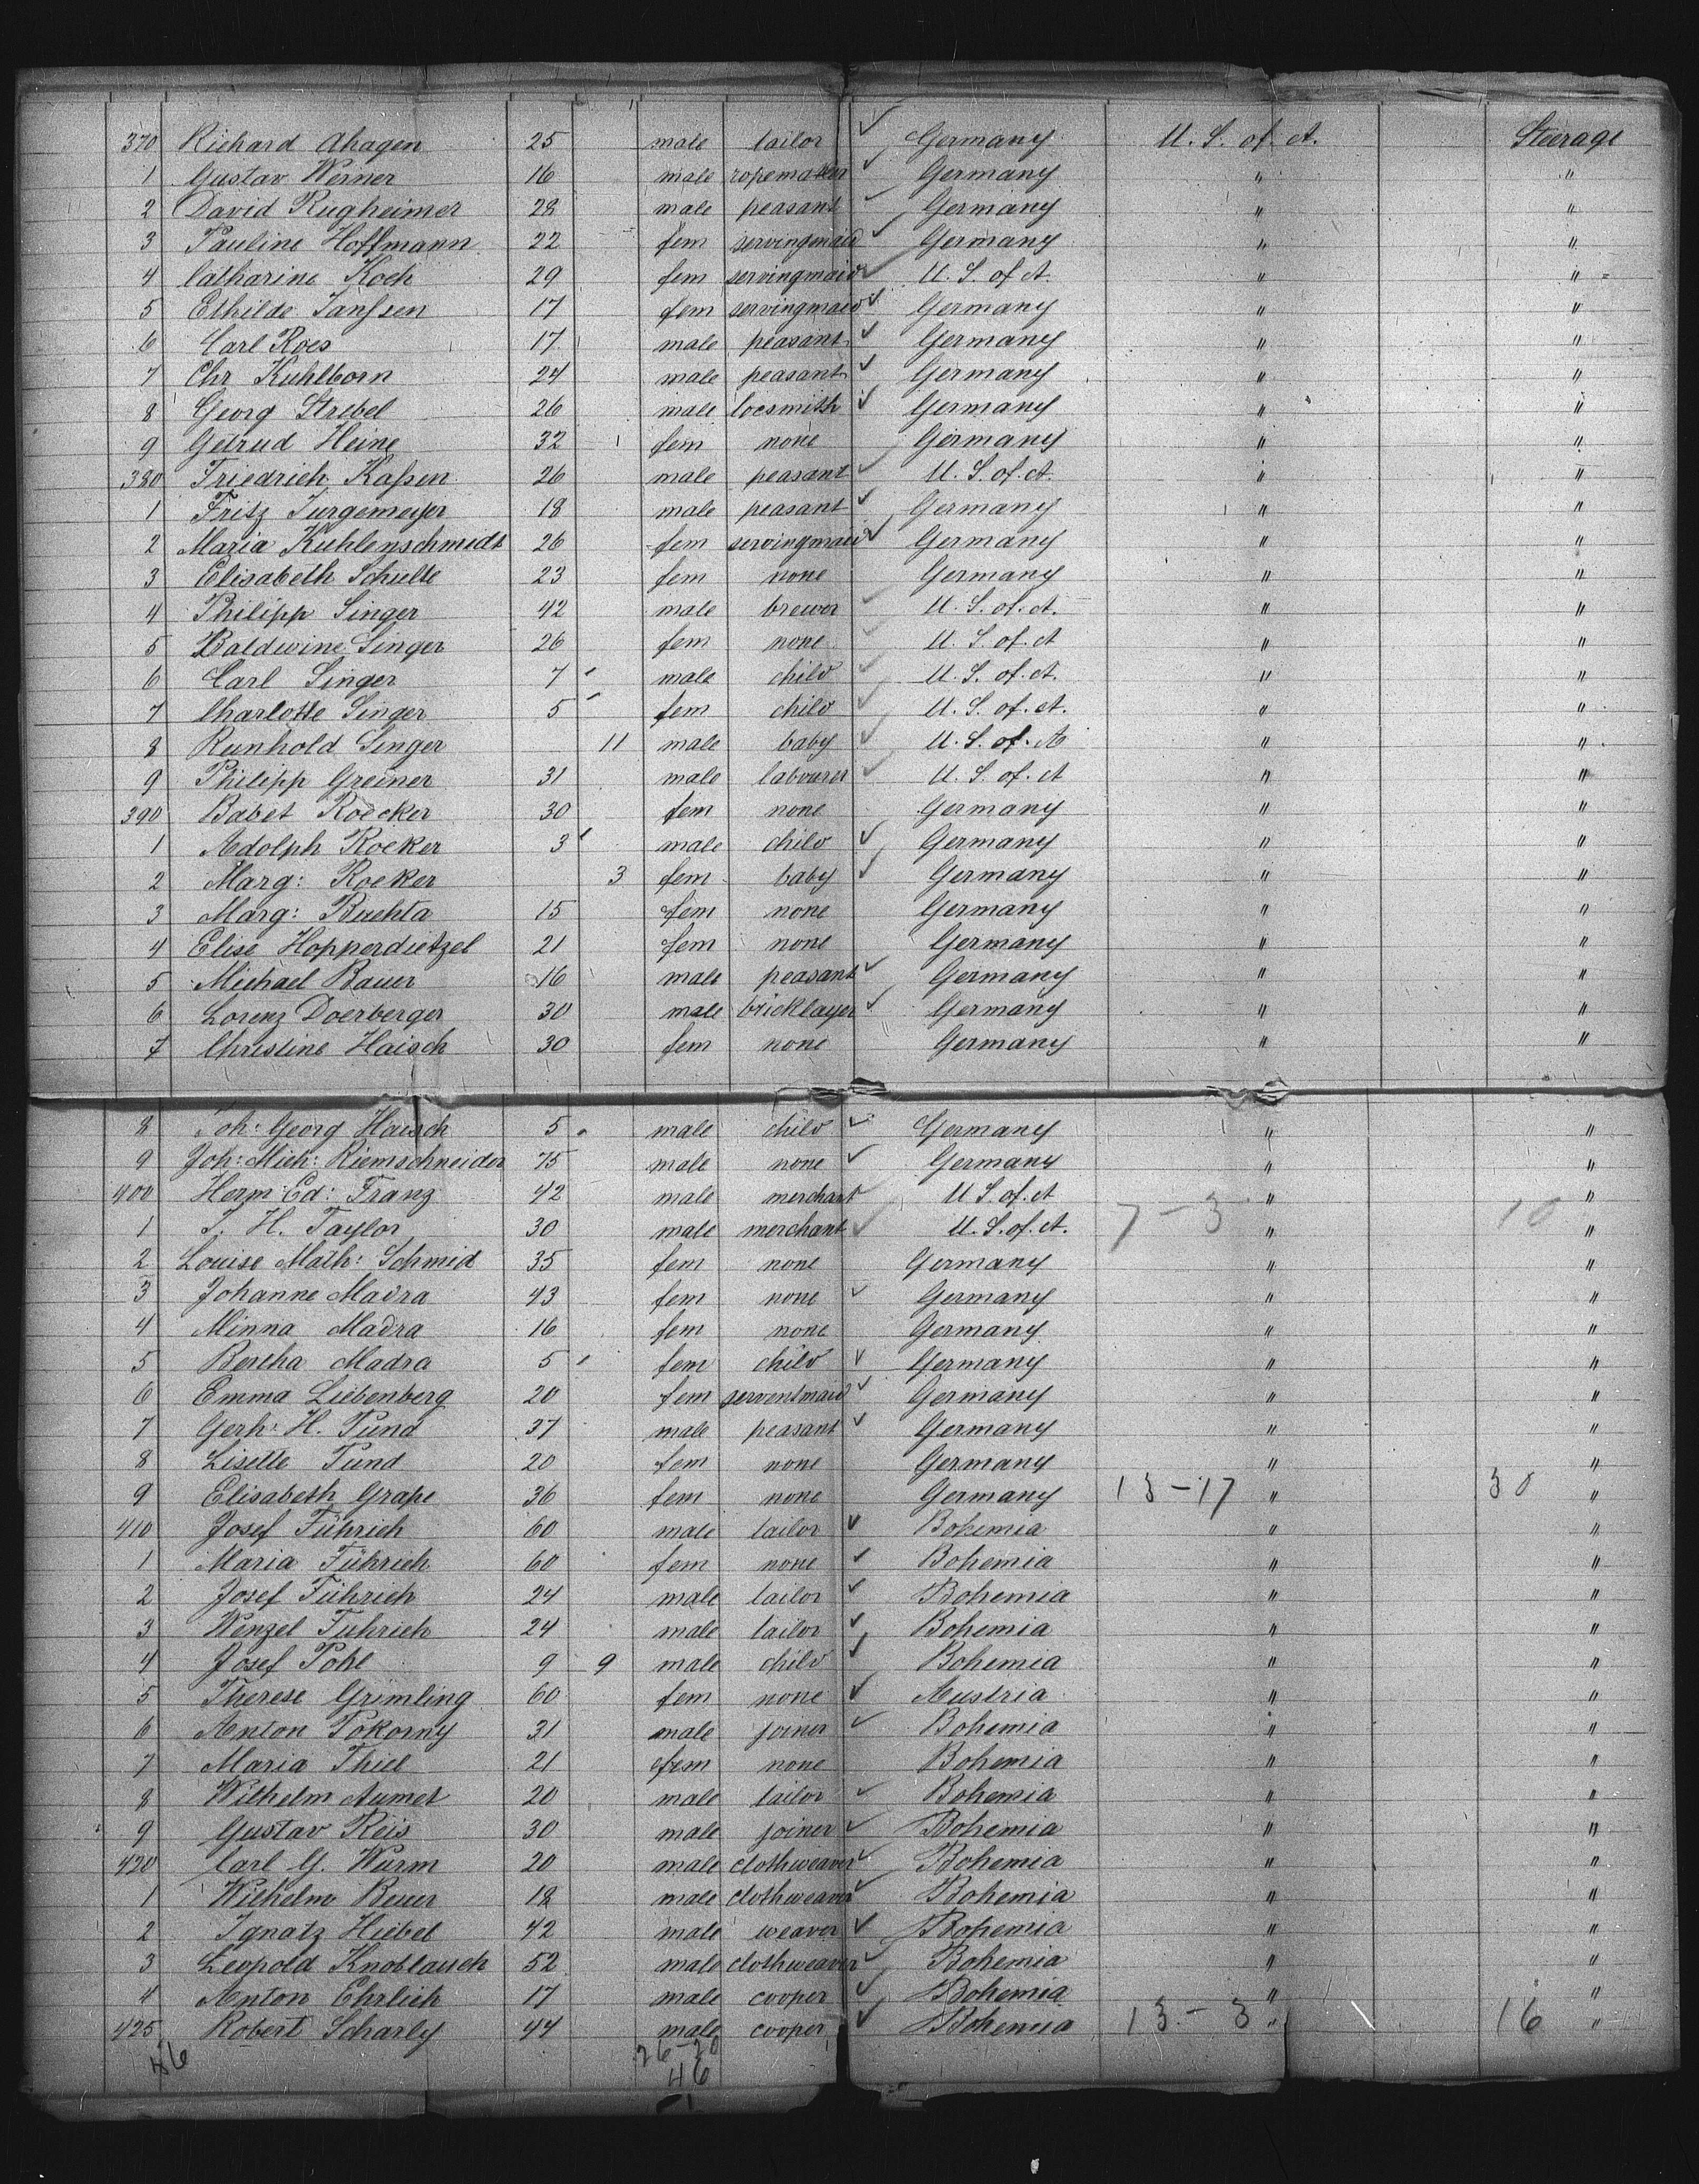 370 Richard Ahagen 25 male tailor ✓ Germany U. S. of A. Steerage
1 Gustav Werner 16 male ropemaker ✓ Germany " "
2 David Rugheimer 28 male peasant ✓ Germany " "
3 Pauline Hoffmann 22 fem servingmaid ✓ Germany " "
4 Catharine Koch 29 fem servingmaid ✓ U. S. of A. " "
5 Ethilde Janssen 17 fem servingmaid ✓ Germany " "
6 Carl Roes 17 male peasant ✓ Germany " "
7 Chr Kuhlborn 24 male peasant ✓ Germany " "
8 Georg Strebel 26 male locsmith ✓ Germany " "
9 Getrud Heine 32 fem none Germany " "
380 Friedrich Kassen 26 male peasant ✓ U. S. of A. " "
1 Fritz Jurgemeyer 18 male peasant ✓ Germany " "
2 Maria Kuhlenschmidt 26 fem servingmaid ✓ Germany " "
3 Elisabeth Schulte 23 fem none Germany " "
4 Philipp Singer 42 male brewer ✓ U. S. of. A. " "
5 Baldwine Singer 26 fem none ✓ U. S. of. A " "
6 Carl Singer 7 male child ✓ U. S. of. A. " "
7 Charlotte Singer 5 fem child ✓ U. S. of. A. " "
8 Runhold Singer 11 male baby ✓ U. S. of. A " "
9 Philipp Greiner 31 male labourer ✓ U. S. of. A " "
390 Babet Roecker 30 fem none Germany " "
1 Adolph Roeker 3 male child ✓ Germany " "
2 Marg: Roeker 3 fem baby ✓ Germany " "
3 Marg: Buchta 15 fem none Germany " "
4 Elise Hopperdietzel 21 fem none Germany " "
5 Michael Bauer 16 male peasant ✓ Germany " "
6 Lorenz Doerberger 30 male bricklayer ✓ Germany " "
7 Christine Haisch 30 fem none Germany " "
8 Joh: Georg Haisch 5 male child ✓ Germany " "
9 Joh: Mich: Riemschneider 75 male none ✓ Germany " "
400 Herm: Ed: Franz 42 male merchant ✓ U S. of. A " "
1 J. H. Taylor 30 male merchant ✓ U. S. of. A. 7 - 3 " 10 "
2 Louise Math: Schmid 35 fem none Germany " "
3 Johanne Madra 43 fem none ✓ Germany " "
4 Minna Madra 16 fem none Germany " "
5 Bertha Madra 5 fem child ✓ Germany " "
6 Emma Liebenberg 20 fem serventmaid ✓ Germany " "
7 Gerh: H. Pund 37 male peasant ✓ Germany " "
8 Lisette Pund 20 fem none Germany " "
9 Elisabeth Grape 36 fem none Germany 13 - 17 " 30 "
410 Josef Führich 60 male tailor ✓ Bohemia " "
1 Maria Führich 60 fem none ✓ Bohemia " "
2 Josef Führich 24 male tailor ✓ Bohemia " "
3 Wenzel Führich 24 male tailor ✓ Bohemia " "
4 Josef Pohl 9 9 male child ✓ Bohemia " "
5 Therese Grimling 60 fem none ✓ Austria " "
6 Anton Pokorny 31 male joiner ✓ Bohemia " "
7 Maria Thiel 21 fem none Bohemia " "
8 Wilhelm Aumet 20 male tailor ✓ Bohemia " "
9 Gustav Reis 30 male joiner ✓ Bohemia " "
420 Carl G. Wurm 20 male clothweaver ✓ Bohemia " "
1 Wilhelm Beuer 18 male clothweaver ✓ Bohemia " "
2 Ignatz Hiebel 42 male weaver ✓ Bohemia " "
3 Leopold Knoblauch 52 male clothweaver ✓ Bohemia " "
4 Anton Ehrlich 17 male cooper ✓ Bohemia " "
425 Robert Scharly 44 male cooper ✓ Bohemia 13 - 3 " 16 "
46 26-20
46